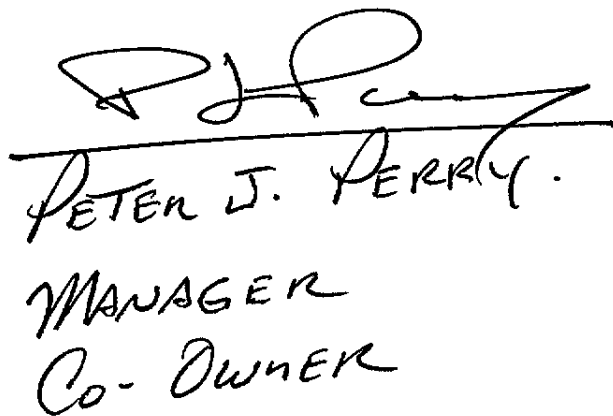 P J Perry
PETER J. PERRY.
MANAGER
CO-OWNER